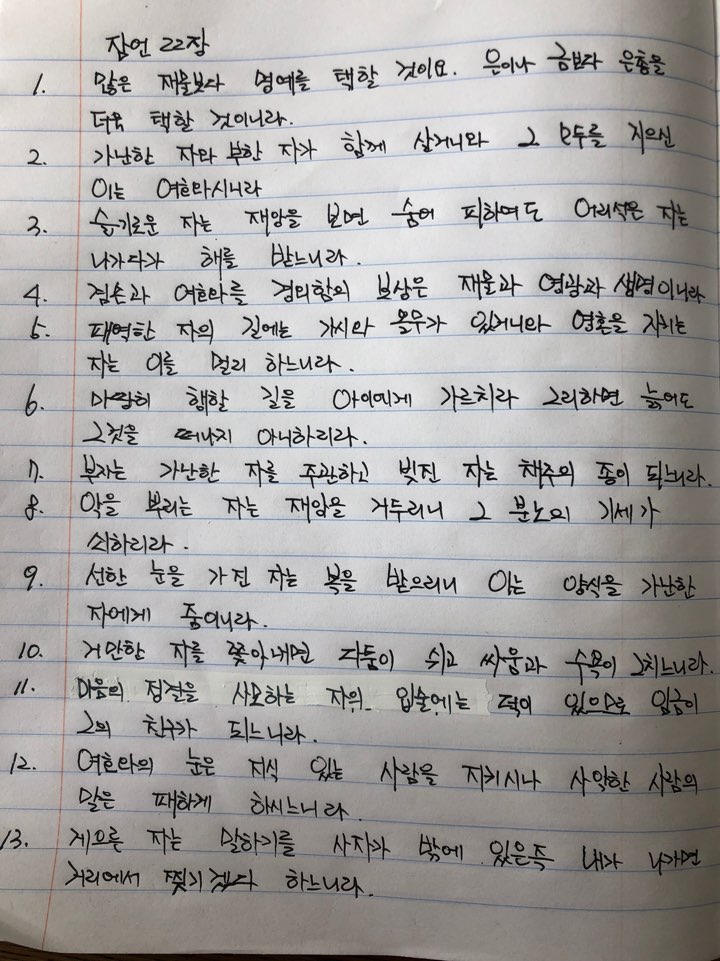 잠언 22장
1. 많은 재물보다 명예를 택할 것이요. 은이나 금보다 은총을
더욱 택할 것이니라.
2. 가난한 자와 부한 자가 함께 살거니와 그 모두를 지으신
이는 여호와시니라
3. 슬기로운 자는 재앙을 보면 숨어 피하여도 어리석은 자는
나가다가 해를 받느니라.
4. 겸손과 여호와를 경외함의 보상은 재물과 영광과 생명이니라
5. 패역한 자의 길에는 가시와 올무가 있거니와 영혼을 지키는
자는 이를 멀리 하느니라.
6. 마땅히 행할 길을 아이에게 가르치라 그리하면 늙어도
그것을 떠나지 아니하리라.
7. 부자는 가난한 자를 주관하고 빚진 자는 채주의 종이 되느니라.
8. 악을 뿌리는 자는 재앙을 거두리니 그 분노의 기세가
쇠하리라.
9. 선한 눈을 가진 자는 복을 받으리니 이는 양식을 가난한
자에게 줌이니라.
10. 거만한 자를 쫓아내면 다툼이 쉬고 싸움과 수욕이 그치느니라.
11. 마음의 정결을 사모하는 자의 입술에는 덕이 있으므로 임금이
그의 친구가 되느니라.
12. 여호와의 눈은 지식 있는 사람을 지키시나 사악한 사람의
말은 패하게 하시느니라.
13. 게으른 자는 말하기를 사자가 밖에 있은즉 내가 나가면
거리에서 찢기겠다 하느니라.